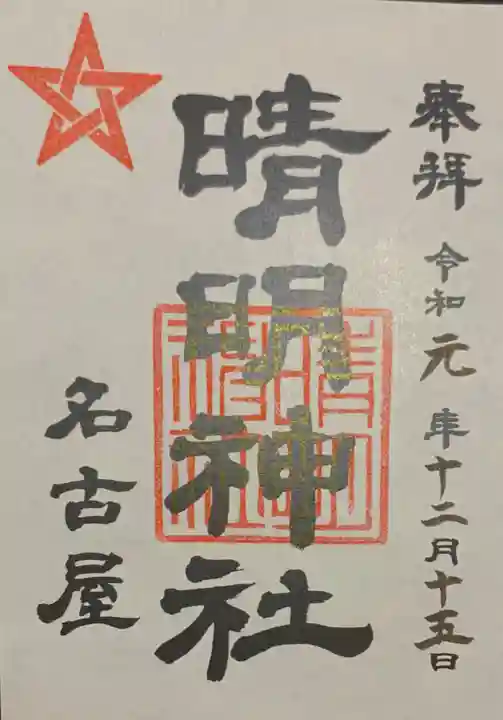 奉拝 令和元年十二月十五日
晴明神社
名古屋